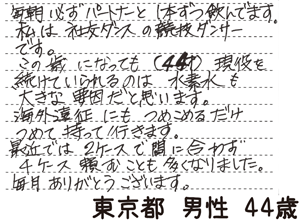 毎朝必ずパートナーと1本ずつ飲んでます。
私は社交ダンスの競技ダンサー
です。
この歳になっても(44才)現役を
続けていられるのは水素水も
大きな要因だと思います。
海外遠征にもつめこめるだけ
つめて持って行きます。
最近では2ケースで間に合わず
4ケース頼むことも多くなりました。
毎月ありがとうございます。
東京都 男性 44歳